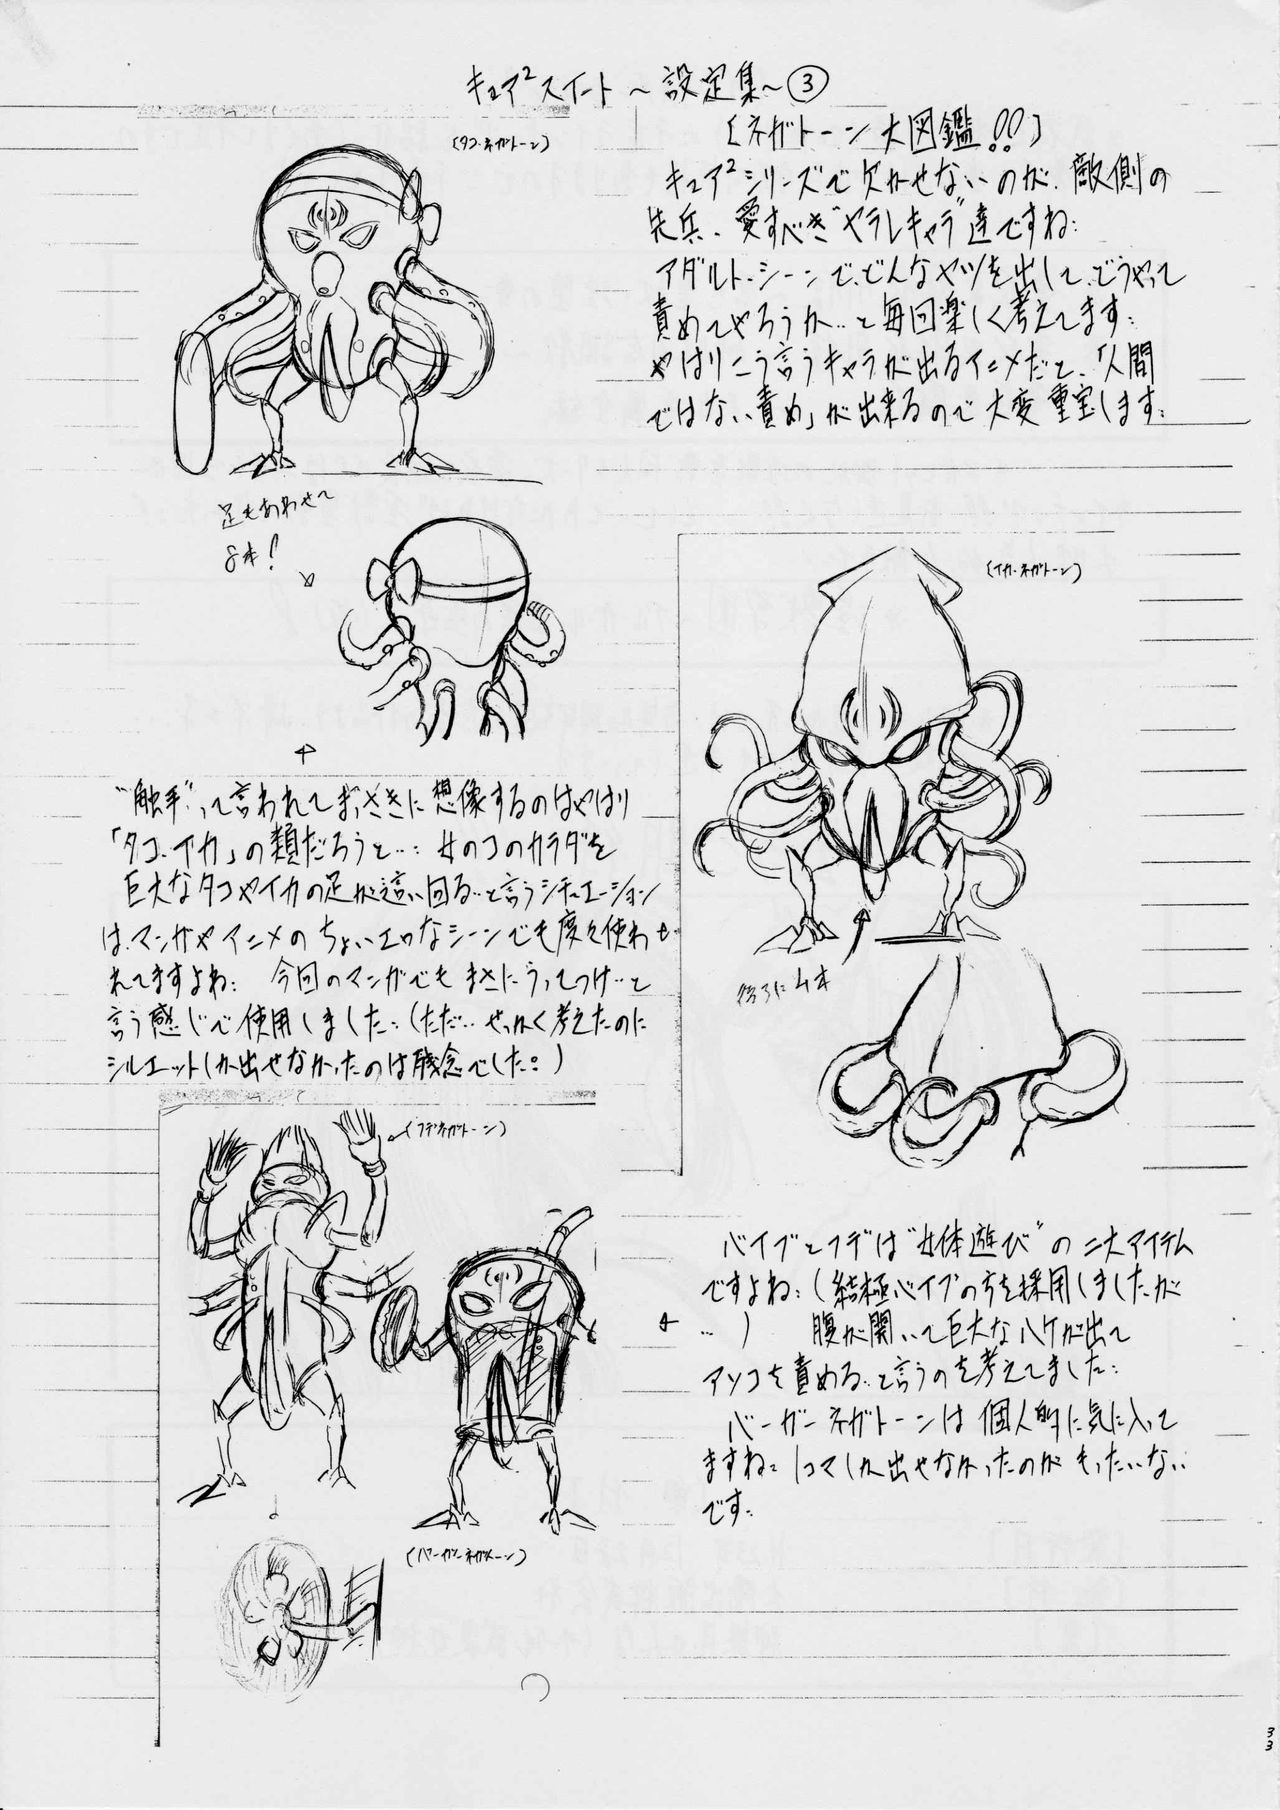 キュア²スイート ～設定集～③
[ネガトーン大図鑑!!]
(タコ・ネガトーン)
キュア²シリーズで欠かせないのが、敵側の
先兵、愛すべき"ヤラレキャラ"達ですね:
アダルト・シーンで、どんなヤツを出して、どうやって
責めてやろうか…と毎回楽しく考えてます:
やはりこう言うキャラが出るアニメだと、「人間
ではない責め」が出来るので大変重宝します:
足もあわせて
8本!
(イカ・ネガトーン)
"触手"って言われてまっさきに想像するのはやはり
「タコ、イカ」の類だろうと…: 女のコのカラダを
巨大なタコやイカの足が這い回る…と言うシチュエーション
は、マンガやアニメのちょいエロなシーンでも度々使わ
れてますよね: 今回のマンガでもまさにうってつけ…と
言う感じで使用しました:(ただ…せっかく考えたのに
シルエットしか出せなかったのは残念でした:)
後ろに4本
(フデネガトーン)
バイブとフデは"女体遊び"の二大アイテム
ですよね:(結極バイブの方を採用しましたが
…) 腹が開いて巨大なハケが出て
アソコを責める…と言うのを考えてました:
バーガーネガトーンは個人的に気に入って
ますね: 1コマしか出せなかったのがもったいない
です:
(バーガーネガトーン)
33